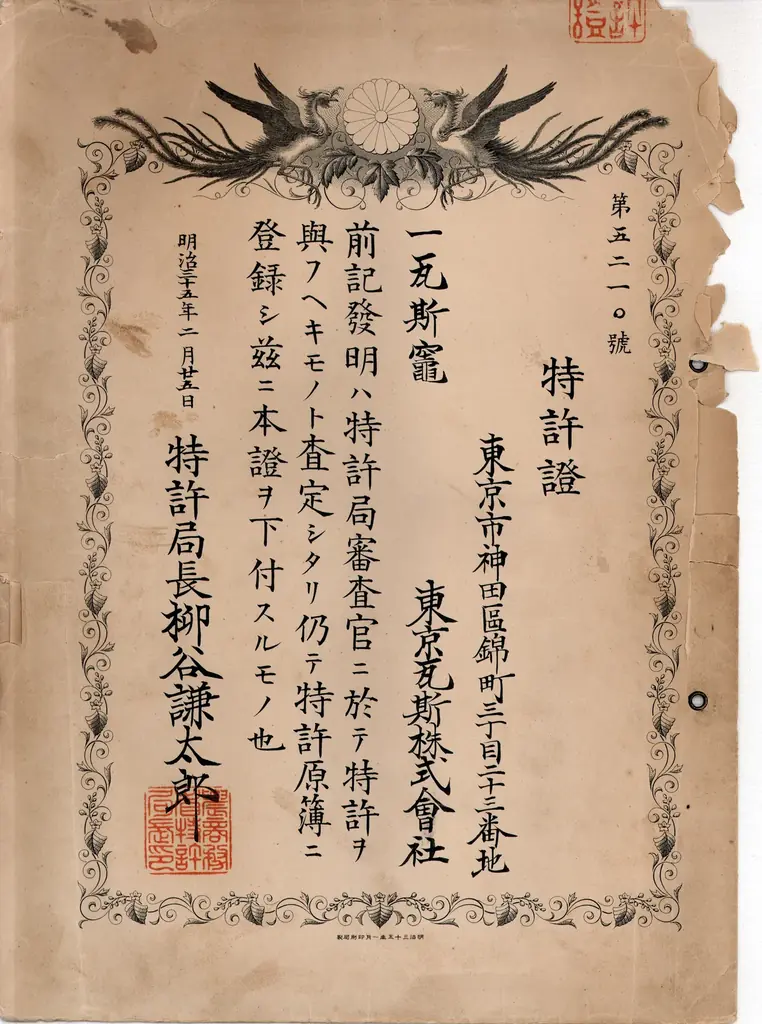 第五二一〇號
特許證
東京市神田區錦町三丁目二十三番地
東京瓦斯株式會社
一瓦斯竈
前記發明ハ特許局審査官ニ於テ特許ヲ
與フヘキモノト査定シタリ仍テ特許原簿ニ
登録シ茲ニ本證ヲ下付スルモノ也
明治三十五年二月廿五日
特許局長柳谷謙太郎